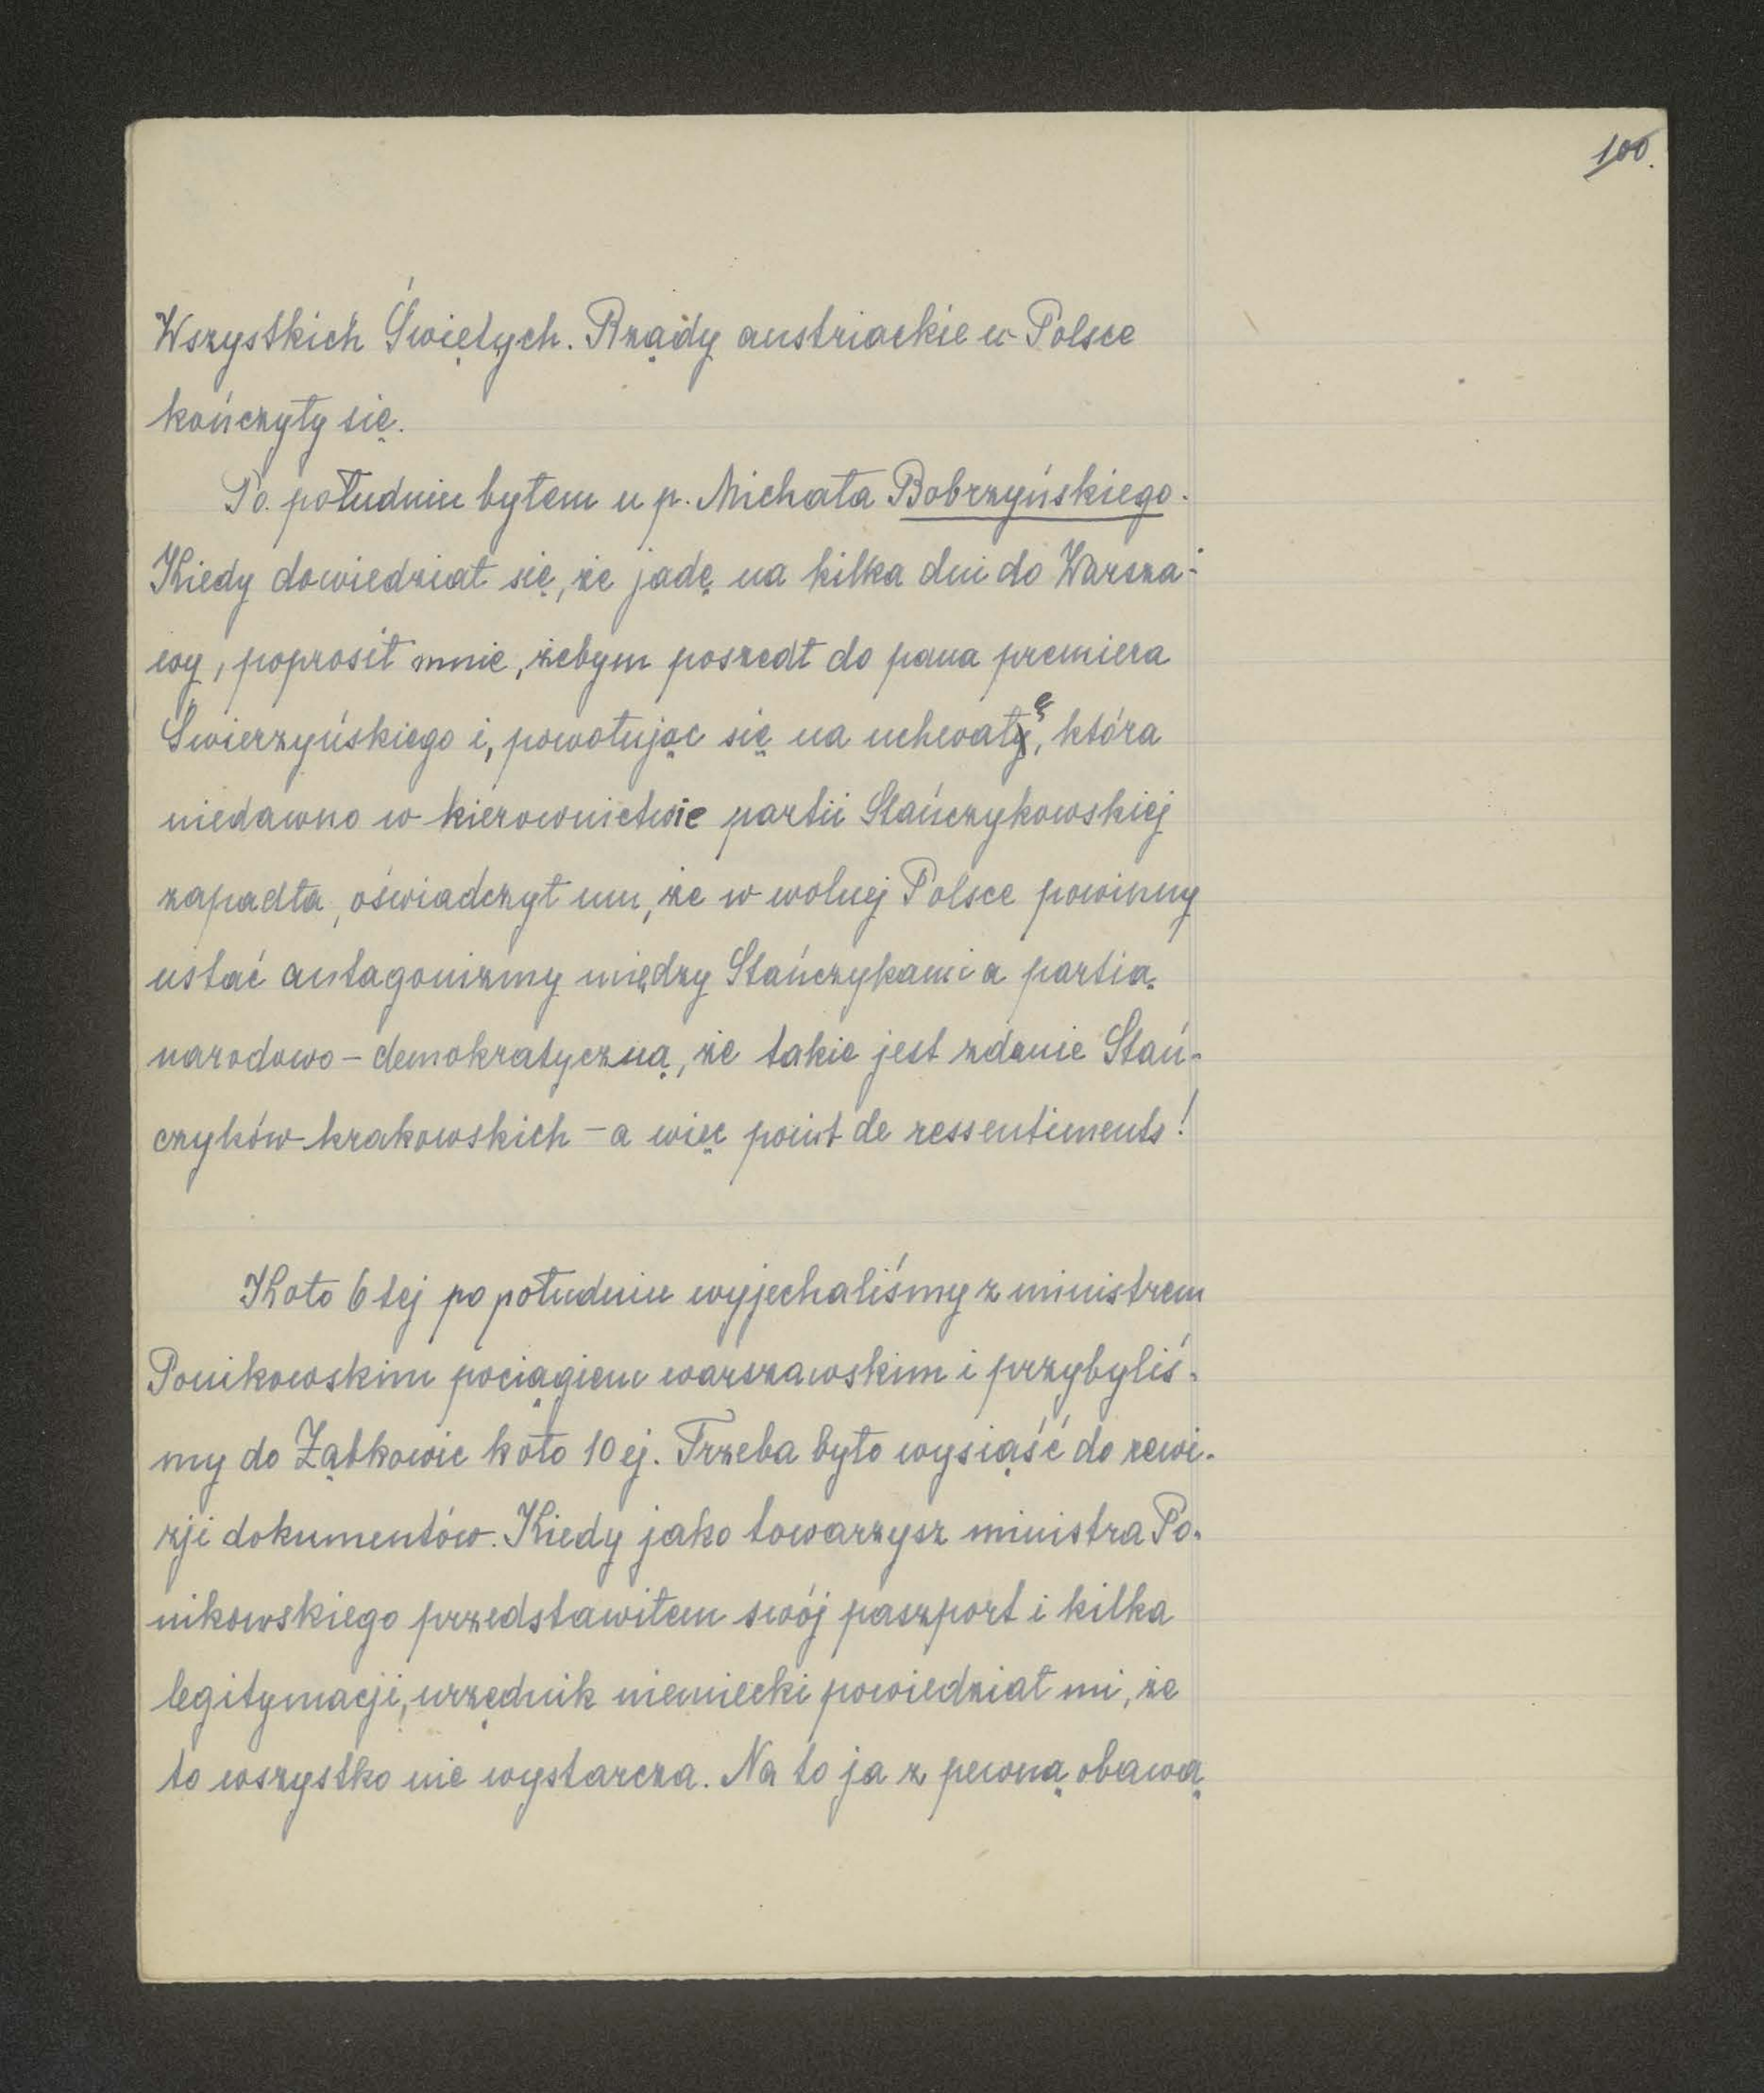 100.
Wszystkich Świętych. Rządy austriackie w Polsce
kończyły się.
Po południu byłem u p. Michała Bobrzyńskiego.
Kiedy dowiedział się, że jadę na kilka dni do Warsza-
wy, poprosił mnie, żebym poszedł do pana premiera
Świerzyńskiego i, powołując się na uchwałę, która
niedawno w kierownictwie partii Stańczykowskiej
zapadła, oświadczył mu, że w wolnej Polsce powinny
ustać antagonizmy między Stańczykami a partią
narodowo-demokratyczną, że takie jest zdanie Stań-
czyków krakowskich – a więc point de ressentiments!
Koło 6tej po południu wyjechaliśmy z ministrem
Ponikowskim pociągiem warszawskim i przybyliś-
my do Ząbkowic koło 10ej. Trzeba było wysiąść do rewi-
zji dokumentów. Kiedy jako towarzysz ministra Po-
nikowskiego przedstawiłem swój paszport i kilka
legitymacji, urzędnik niemiecki powiedział mi, że
to wszystko nie wystarcza. Na to ja z pewną obawą